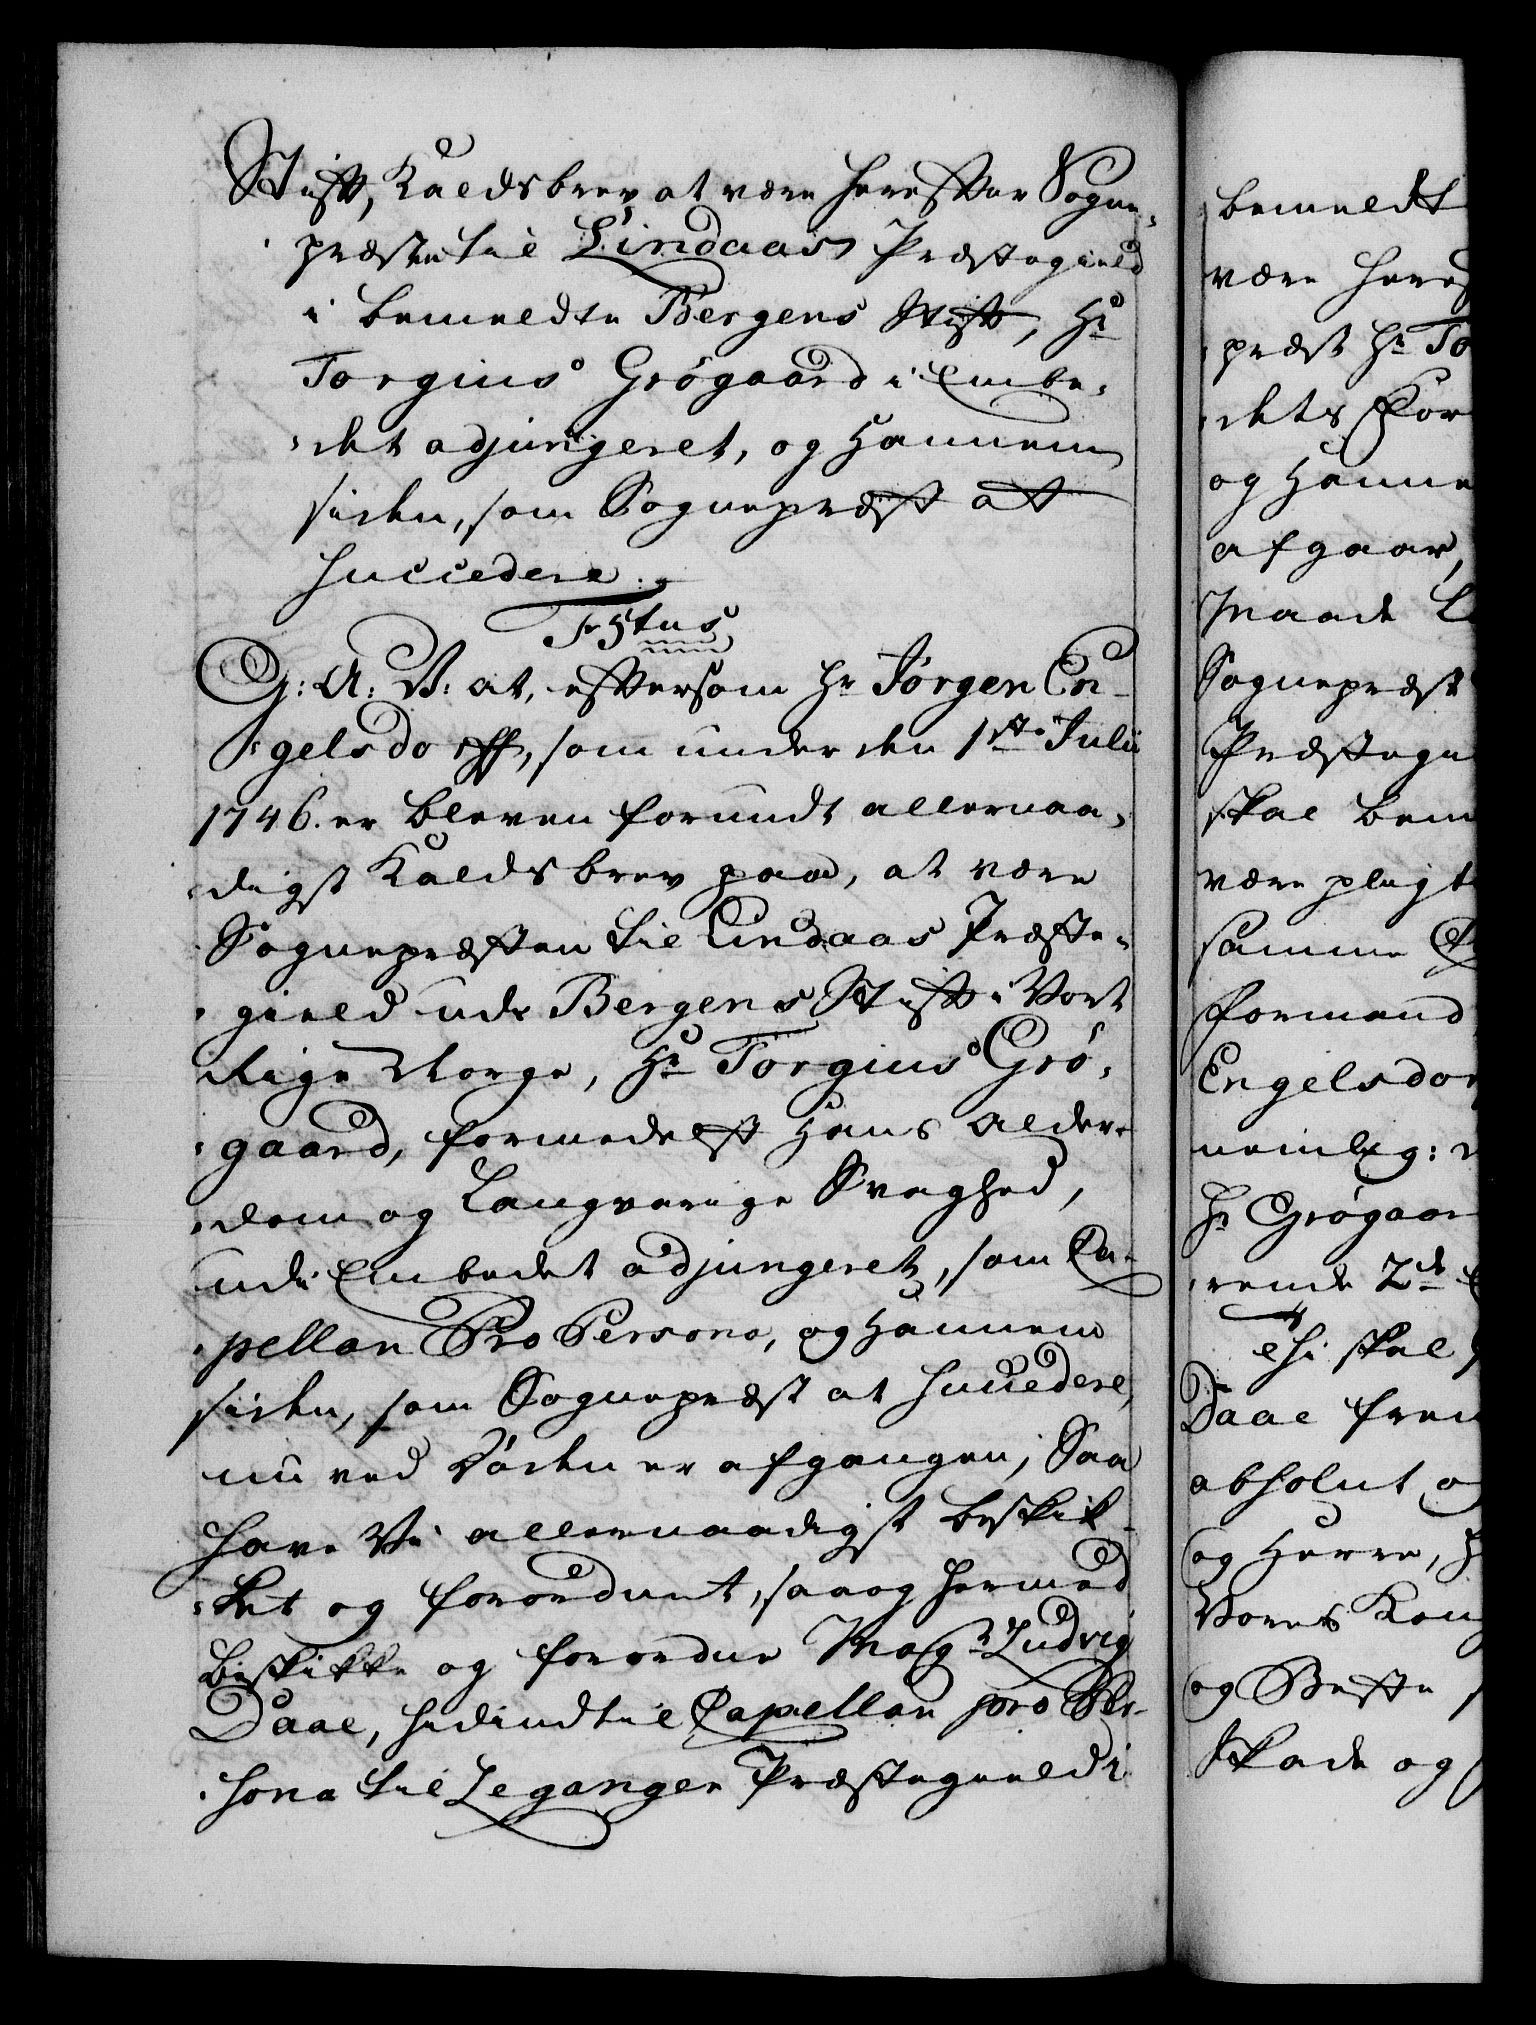 Stift, Kaldsbrev at være hereffter Sogne-
præsten til Lindaas Præstegield
i bemeldte Bergens Stift, Hr
Torgius Grögaard i Embe-
det adjungeret, og Hannem
siden, som Sognepræst at
succedere.
G: A: V: at, eftersom Hr Jörgen En-
gelsdorff, som under den 1ste Julii
1746. er bleven forundt allernaa-
digst Kaldsbrev paa, at være
Sognepræsten til Lindaas Præste-
gield udi Bergens Stift i Vort
Rige Norge, Hr Torgius Grö-
gaard, formedelst Hans Alder-
dom og langvarige Svaghed,
udi Embedet adjungeret, som Ca-
pellan Pro Persona, og Hannem
siden, som Sognepræst at succedere,
nu ved Döden er afgangen; Saa
have Vi allernaadigst beskik-
ket og forordnet, saa og hermed
beskikke og forordne Magr Ludvig
Daae, hidindtil Capellan pro Per-
sona til Leganger Præstegield i
bemeldt
være heref
præst Hr To
dets For
og Hanne
afgaar,
Maade
Sognepræst
Præstegie
skal bem
være pligt
samme
Formand
Engelsdor
nemlig:
Hr Grögaar
rende 2de
Thi skal
Daae frem
absolut o
og Herre,
Vores Kon
og Beste
Skade og